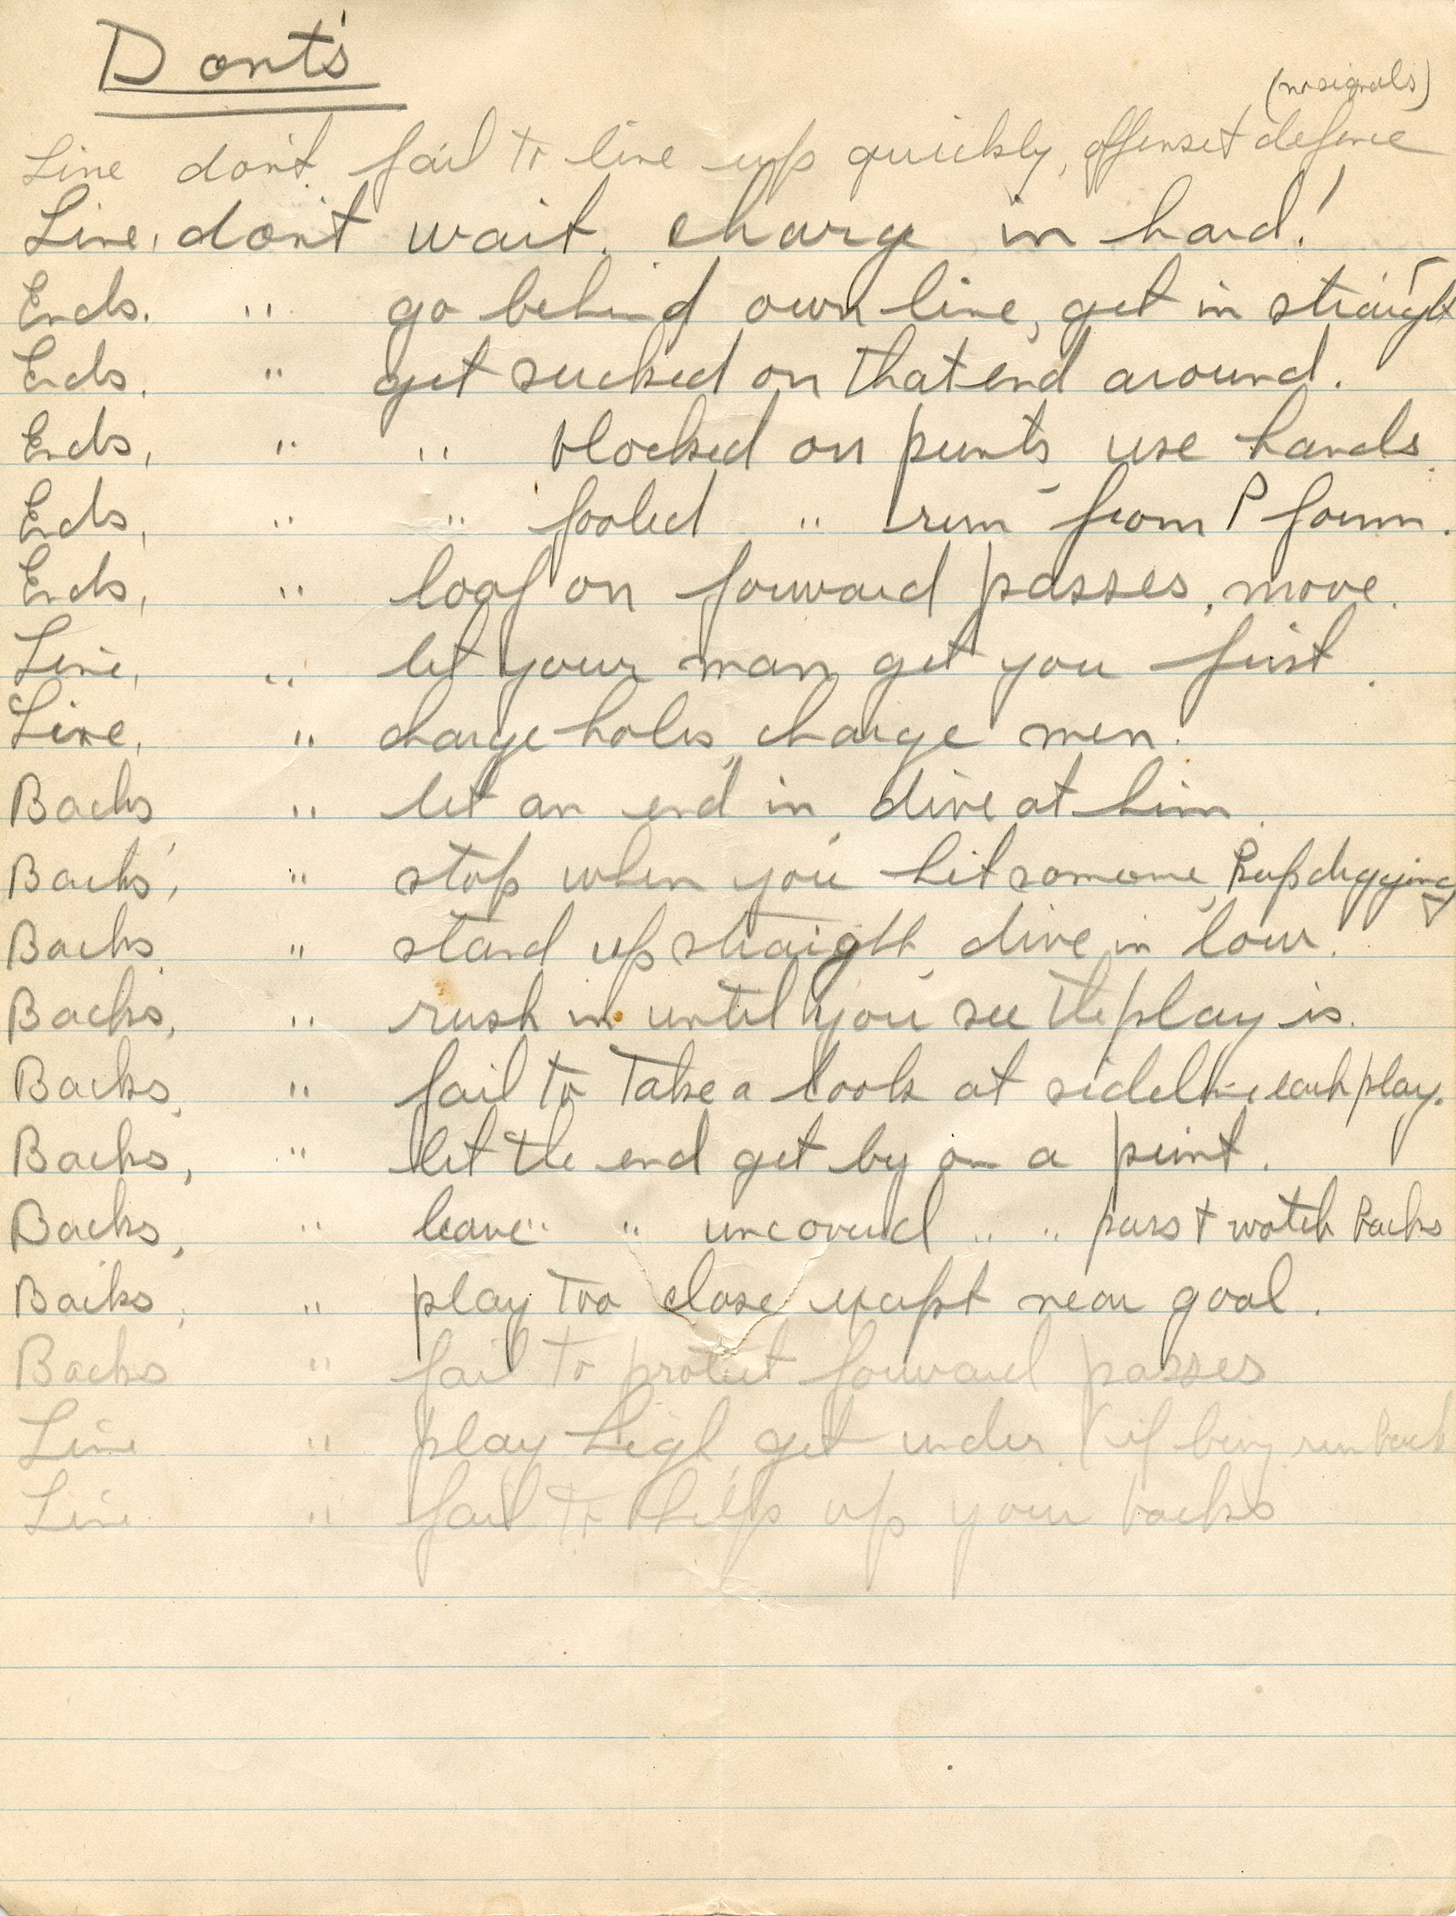 Dont's
(no signals)
Line don't fail to line up quickly, offense + defence
Line, don't wait. charge in hard!
Ends. " go behind own line, get in straight
Ends. " get sucked on that end around.
Ends, " " blocked on punts, use hands.
Ends, " " fooled " run from P form.
Ends, " loaf on forward passes, move.
Line, " let your man get you first.
Line, " charge holes, charge men.
Backs " let an end in, dive at him.
Backs, " stop when you hit someone, keep digging
Backs. " stand up straight, dive in low.
Backs, " rush in until you see the play is.
Backs, " fail to take a look at sideline each play.
Backs, " let the end get by on a punt.
Backs, " leave " " uncoverd " " pass + watch backs
Backs, " play too close except near goal.
Backs " fail to protect forward passes
Line " play high, get under (if being run back
Line " fail to help up your backs